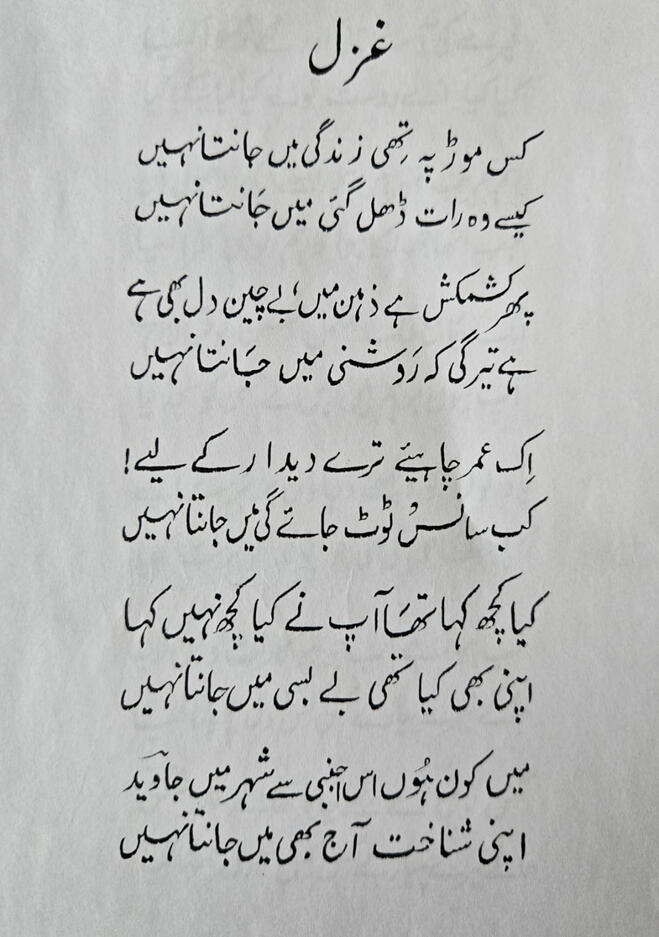 غزل
کس موڑ پہ تھی زندگی میں جانتا نہیں
کیسے وہ رات ڈھل گئی میں جانتا نہیں
پھر کشمکش ہے ذہن میں، بے چین دل بھی ہے
ہے تیرگی کہ روشنی میں جانتا نہیں
اِک عمر چاہیئے ترے دیدار کے لیے!
کب سانس ٹوٹ جائے گی میں جانتا نہیں
کیا کچھ کہا تھا آپ نے کیا کچھ نہیں کہا
اپنی بھی کیا تھی بے بسی میں جانتا نہیں
میں کون ہُوں اس اجنبی سے شہر میں جاویدؔ
اپنی شناخت آج بھی میں جانتا نہیں